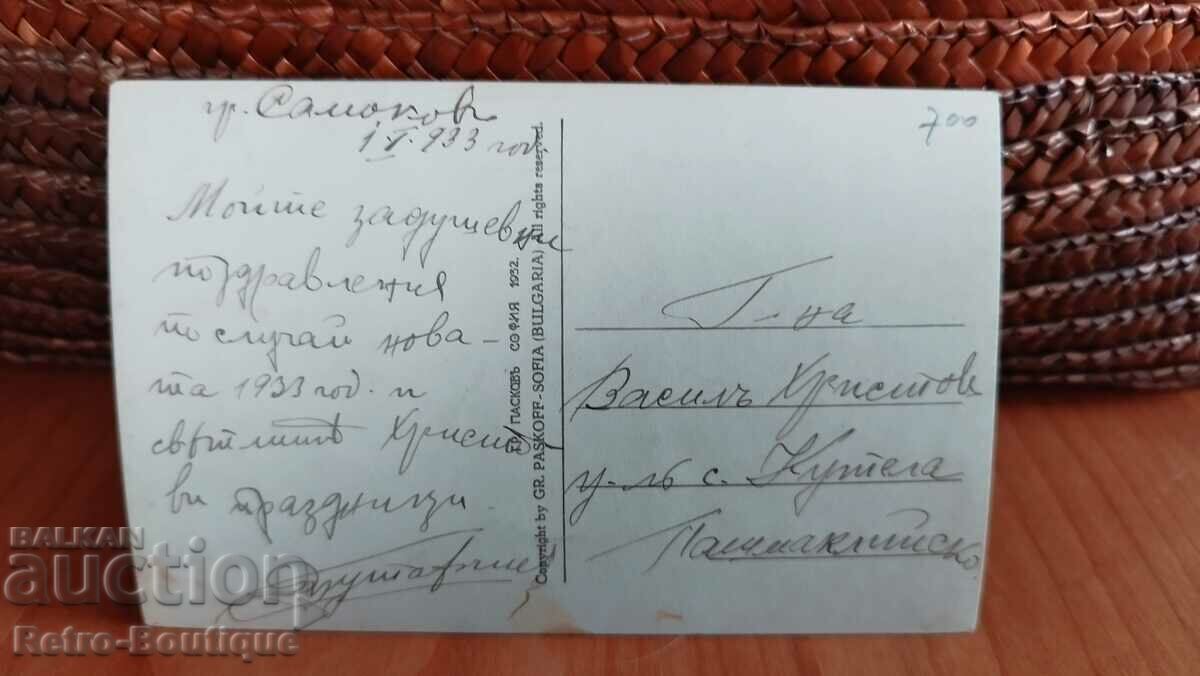 гр. Самоковъ
1.I.933 год.
Мойте задушевни
поздравления
по случай нова-
та 1933 год. и
свѣтлитѣ Христо
ви праздници.
ГР. ПАСКОВЪ СОФИЯ 1932.
Copyright by GR. PASKOFF-SOFIA (BULGARIA) All rights reserved.
700
Г-на
Василъ Христовъ
у-лъ с. Кутела
Пашмаклийско
BALKAN
auction
Retro-Boutique